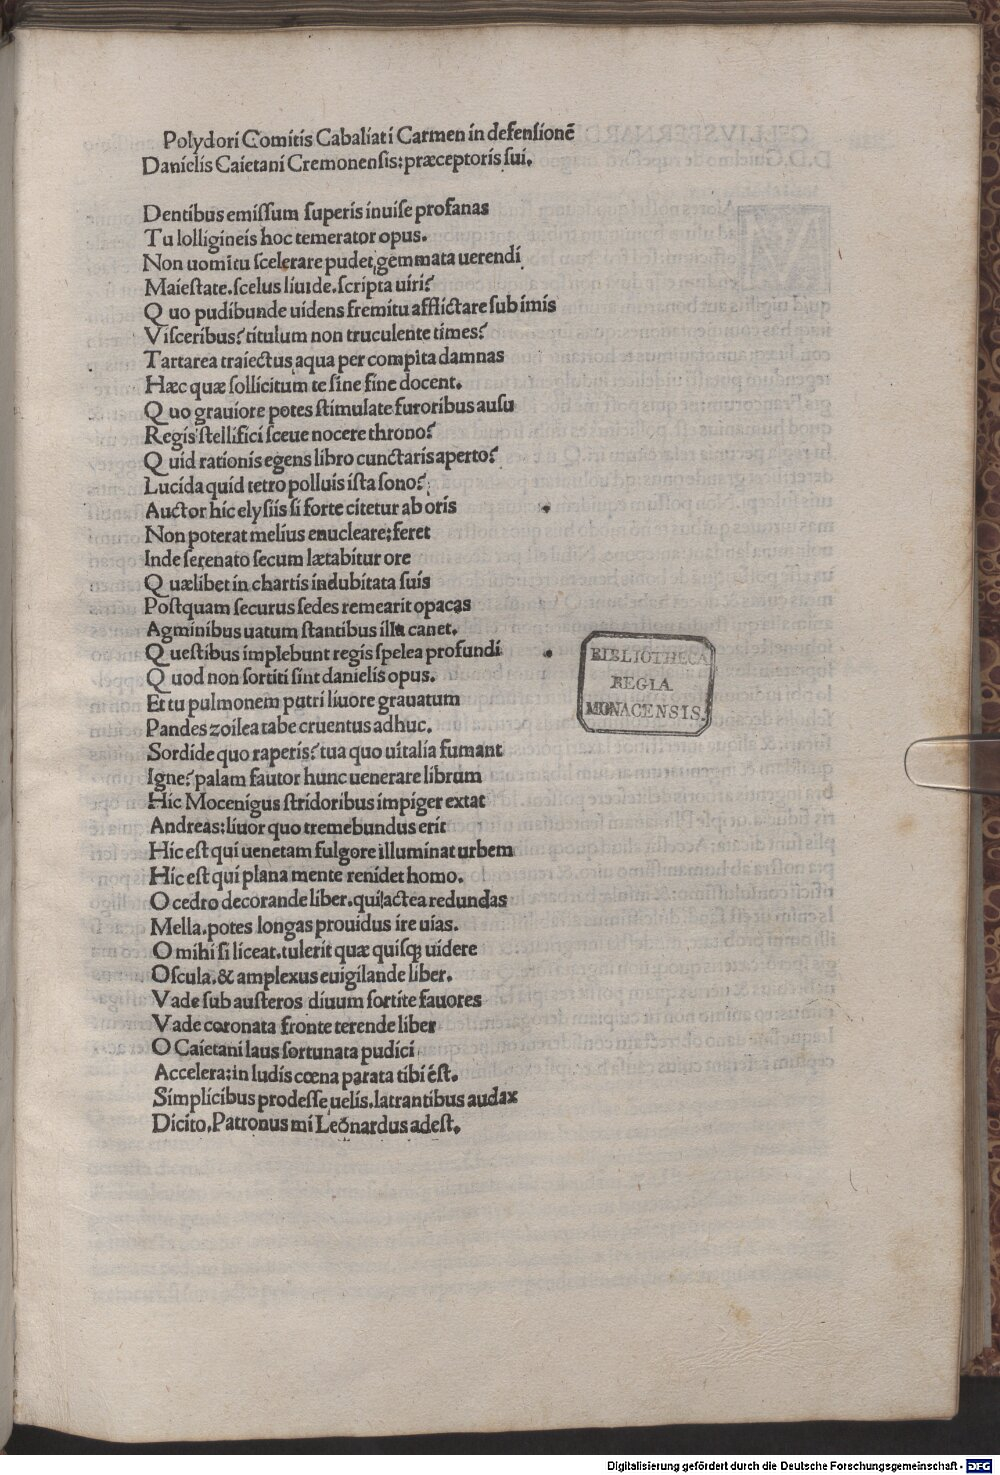 Polydori Comitis Cabaliati Carmen in defensionē
Danielis Caietani Cremonensis: præceptoris sui.
Dentibus emissum superis inuise profanas
Tu lolligineis hoc temerator opus.
Non uomitu scelerare pudet, gemmata uerendi
Maiestate. scelus liuide. scripta uiri?
Quo pudibunde uidens fremitu afflictare sub imis
Visceribus? titulum non truculente times?
Tartarea traiectus aqua per compita damnas
Hæc quæ sollicitum te sine fine docent.
Quo grauiore potes stimulate furoribus ausu
Regis stellifici sceue nocere throno?
Quid rationis egens libro cunctaris aperto?
Lucida quid tetro polluis ista sono?
Auctor hic elysiis si forte citetur ab oris
Non poterat melius enucleare: feret
Inde serenato secum lætabitur ore
Quælibet in chartis indubitata suis
Postquam securus sedes remearit opacas
Agminibus uatum stantibus illa canet.
Questibus implebunt regis spelea profundi
Quod non sortiti sint danielis opus.
Et tu pulmonem putri liuore grauatum
Pandes zoilea tabe cruentus adhuc.
Sordide quo raperis? tua quo uitalia fumant
Igne? palam fautor hunc uenerare librum
Hic Mocenigus stridoribus impiger extat
Andreas: liuor quo tremebundus erit
Hic est qui uenetam fulgore illuminat urbem
Hic est qui plana mente renidet homo.
O cedro decorande liber. qui lactea redundas
Mella. potes longas prouidus ire uias.
O mihi si liceat. tulerit quæ quisqꝫ uidere
Oscula. & amplexus euigilande liber.
Vade sub austeros diuum sortite fauores
Vade coronata fronte terende liber
O Caietani laus fortunata pudici
Accelera: in ludis cœna parata tibi ēst.
Simplicibus prodesse uelis. latrantibus audax
Dicito, Patronus mi Leonardus adest.
BIBLIOTHECA
REGIA
MONACENSIS.
Digitalisierung gefördert durch die Deutsche Forschungsgemeinschaft - DFG